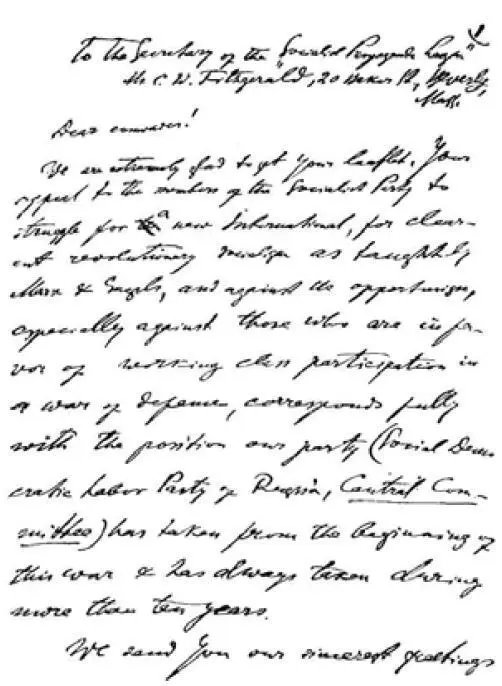 To the Secretary of the "Socialist Propaganda League"
Mr C. W. Fitzgerald, 20 Baker St, Beverly,
Mass.
Dear comrades!
We are extremely glad to get your leaflet. Your
appeal to the members of the Socialist Party to
struggle for a new International, for clear-
cut revolutionary socialism as taught by
Marx & Engels, and against the opportunism,
especially against those who are in fa-
vor of working class participation in
a war of defence, corresponds fully
with the position our party (Social Demo
cratic Labor Party of Russia, Central Com-
mittee) has taken from the beginning of
this war & has always taken during
more than ten years.
We send You our sincerest greetings